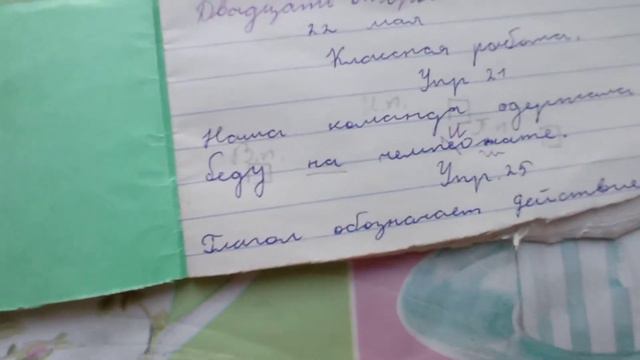 Двадцать второе
22 мая
Классная работа.
Упр 21
И.п.
Наша команда одержала
В.п. П.п.
беду на чемпеонате.
и
Упр. 25
Глагол обозначает действие